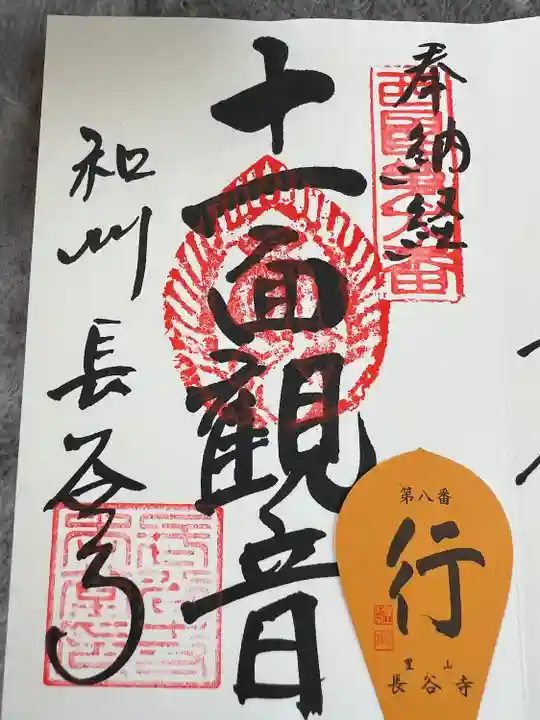 奉納経
西国第八番
十一面観音
和州 長谷寺
第八番
行
豊山
長谷寺